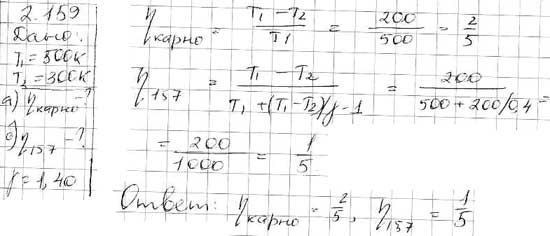 2.159
Дано:
T₁ = 500К
T₂ = 300К
а) η карно - ?
б) η 157 - ?
γ = 1,40
η карно = (T₁ - T₂)/T₁ = 200/500 = 2/5
η 157 = (T₁ - T₂)/(T₁ + (T₁ - T₂)/γ - 1) = 200/(500 + 200/0,4) =
= 200/1000 = 1/5
Ответ: η карно = 2/5, η 157 = 1/5